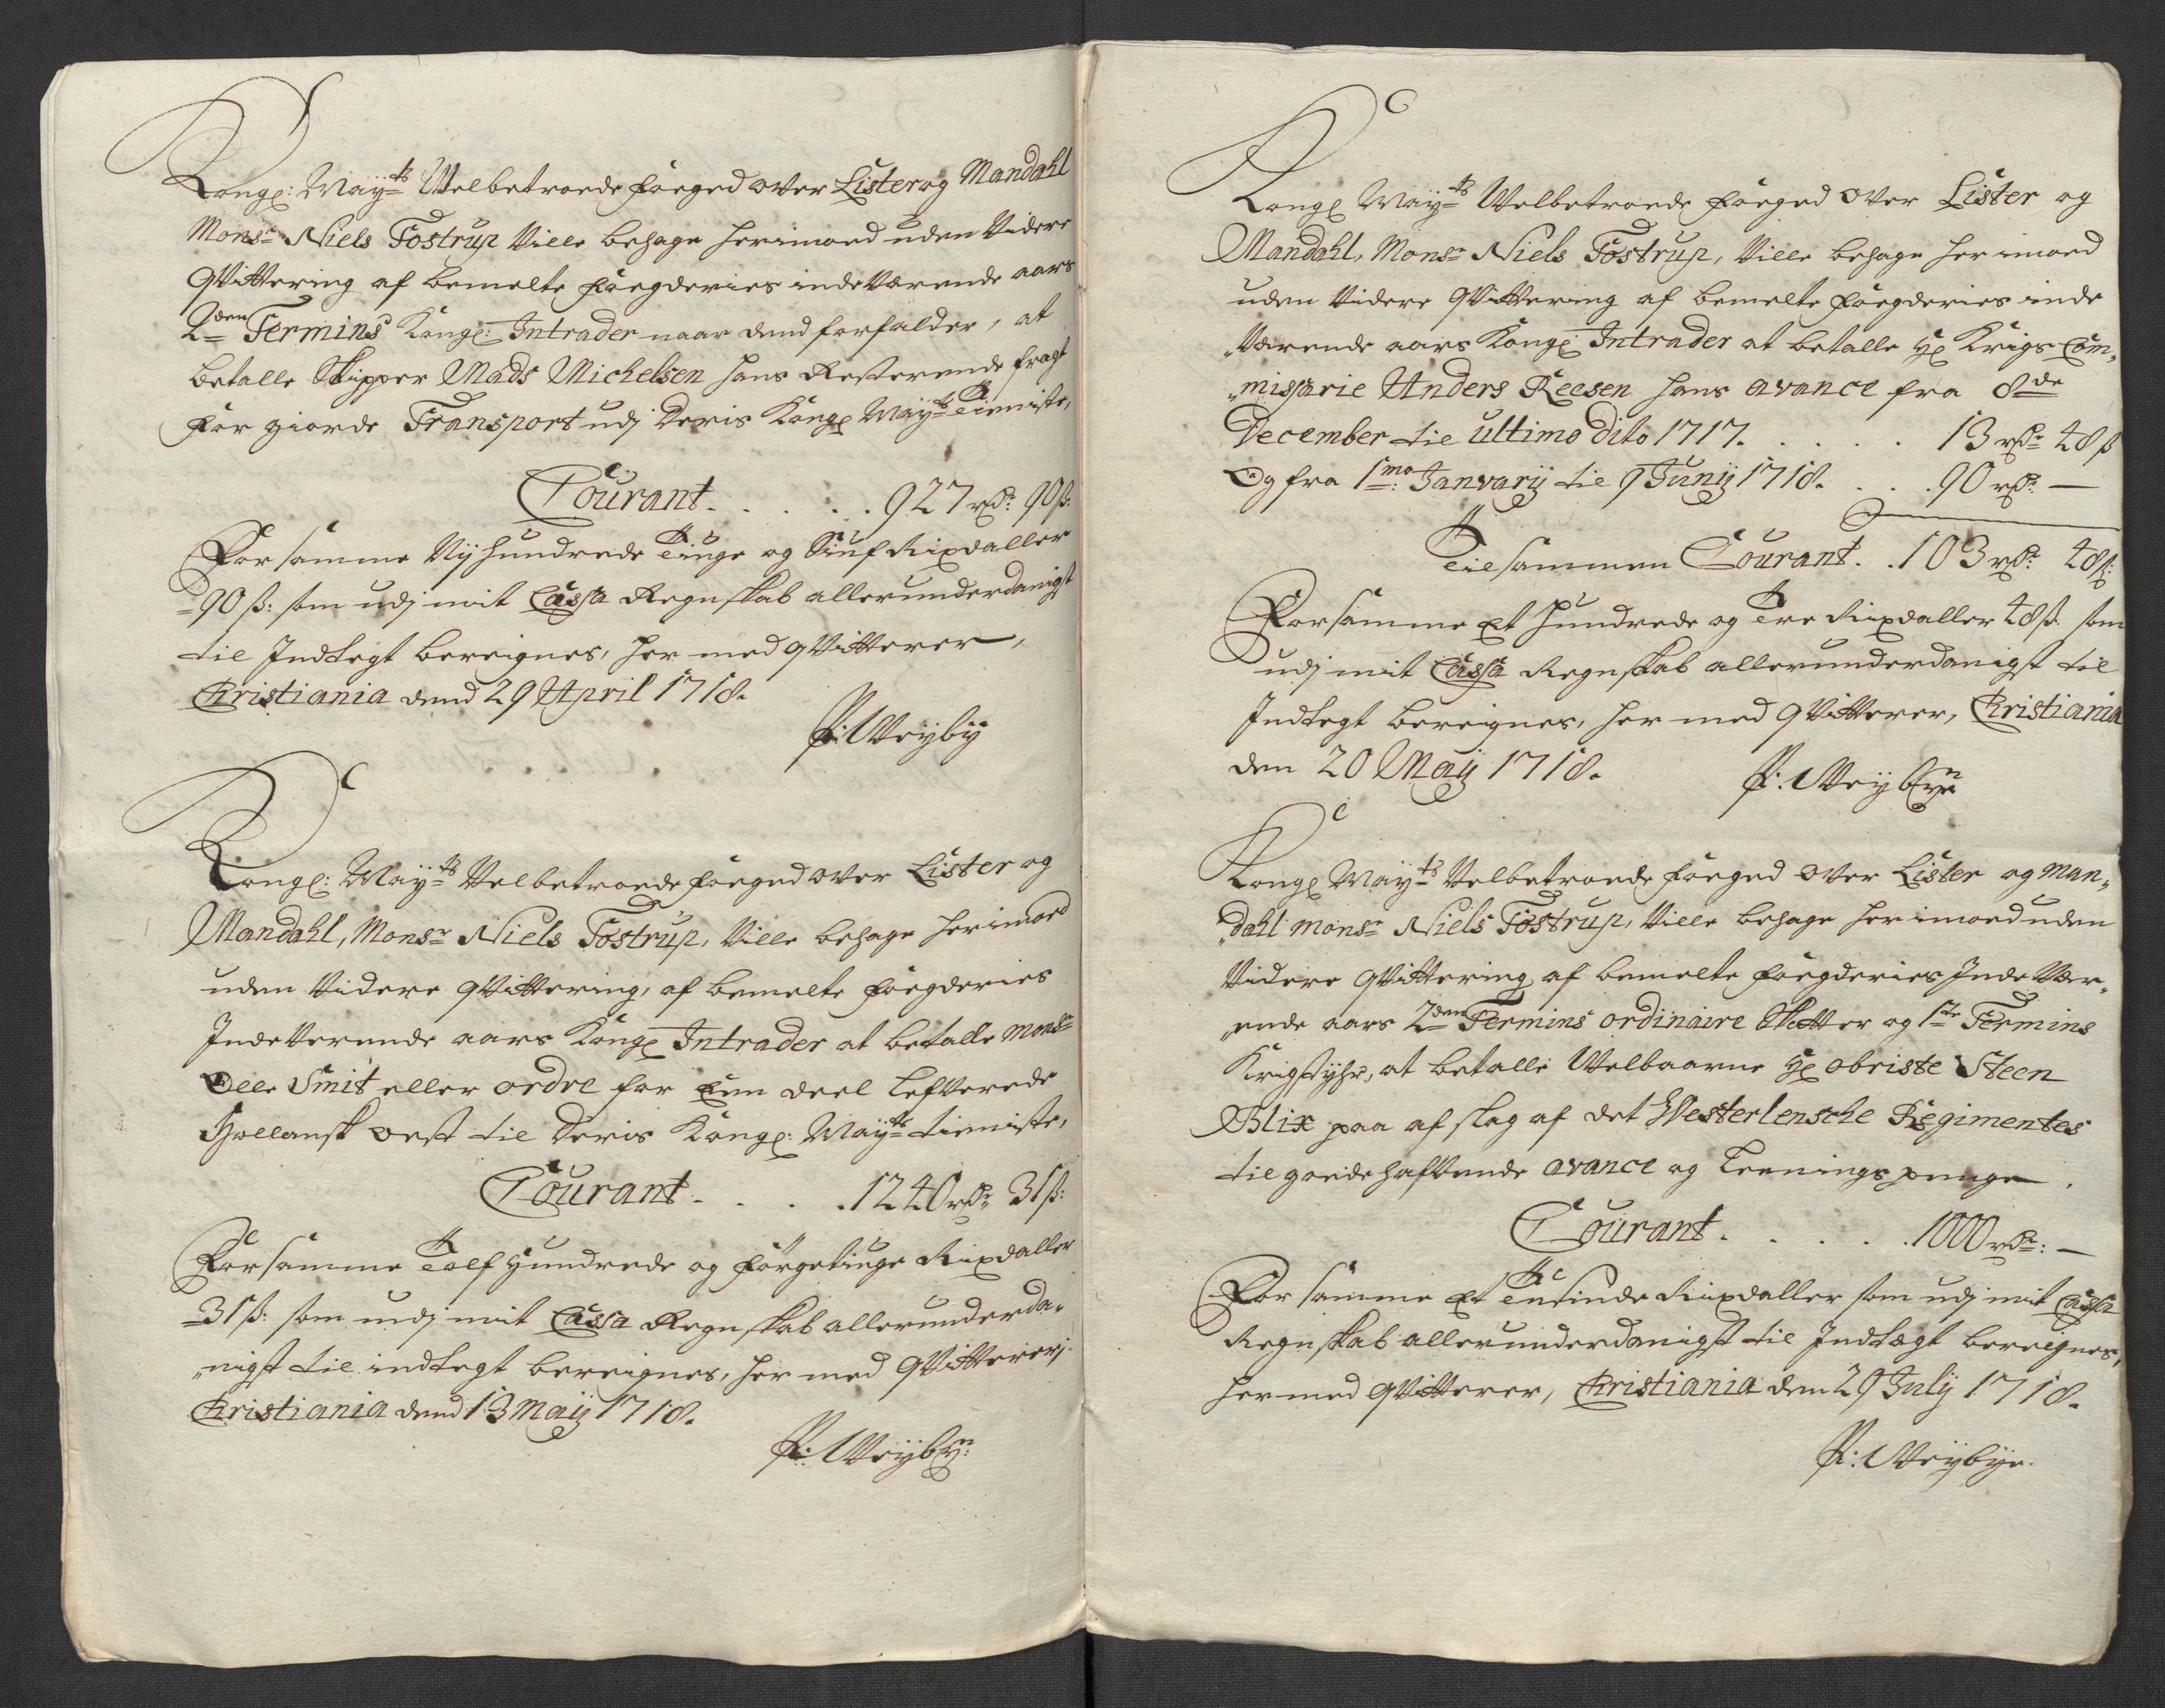 Kongl: Maÿts Welbetroede Foeged over Lister og Mandahl
Monsr Niels Tostrup Ville behage herimoed uden Videre
qvittering af bemelte Foegderies indeVærende aars
2den Termins Kongl: Intrader naar dend forfalder, at
betalle Skipper Mads Michelsen hans Resterende fragt
for giorde Transport udj Deris Kongl Maÿts Tieniste,
Courant. . . . . 927 rdr 90 ß:
For samme Nÿ hundrede Tiuge og Siuf Rixdaller
90 ß: som udj mit Cassa Regnskab allerunderdanigst
til Indtegt bereignes, her med qvitterer,
Christiania dend 29 April 1718.
P: Weÿby
Kongl: Maÿts Velbetroede Foeged over Lister og
Mandahl, Monsr Niels Tostrup, Ville behage herimoed
uden Videre qvittering, af bemelte Foegderies
IndeVerende aars Kongl Intrader at betalle Monsr
Olle Smit eller ordre for Een deel lefverede
Hollansk oest til Deris Kongl: Maÿts tieniste,
Courant. . . . . 1240 rdr 31 ß:
For samme Tolf Hundrede og förgetiuge Rixdaller
31 ß: som udj mit Cassa Regnskab allerunderda-
nigst til indtegt bereignes, her med qvitterer,
Christiania dend 13 Maÿ 1718.
P: Weÿbye:
Kongl Maÿts Welbetroede Foeged over Lister og
Mandahl, Monsr Niels Tostrup, Ville behage her imoed
uden Videre qvittering af bemelte Foegderies inde
Værende aars Kongl Intrader at betalle Hl Krigs Com-
missarie Anders Reesen hans avance fra 8de
December til ultimo dito 1717. . . . . 13 rdr 48 ß
Og fra 1mo: Janvarÿ til 9 Junÿ 1718. . . . 90 rdr —
Tilsammen Courant. . 103 rdr 48 ß:
For samme Et hundrede og Tre Rixdaller 48 ß. som
udj mit Cassa Regnskab allerunderdanigst til
Indtegt bereignes, her med qvitterer, Christiania
den 20 Maÿ 1718.
P: Weÿbye
Kongl Maÿts Velbetroede Foeged over Lister og Man-
dahl Monsr Niels Tostrup, Ville behage her imoed uden
Videre qvittering af bemelte Foegderies IndeVær-
ende aars 2den Termins ordinaire Skatter og 1ste Termins
Krigstÿhr, at betalle Welbaarne Hl obriste Steen
Blix paa afslag af det Westerlensche Regimentes
tilgoedehafvende avance og Leenings penge.
Courant. . . . . 1000 rdr: —
For samme Et Tusinde Rixdaller som udj mit Cassa
Regnskab allerunderdanigst til Indtægt bereignes,
hermed qvitterer, Christiania den 29 Julÿ 1718.
P: Weÿbÿe.